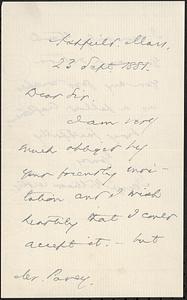 Ashfield, Mass.
23 Sept 1881.
Dear Sir
I am very
much obliged by
your friendly invi-
tation and I wish
heartily that I could
accept it. – but
Mr.